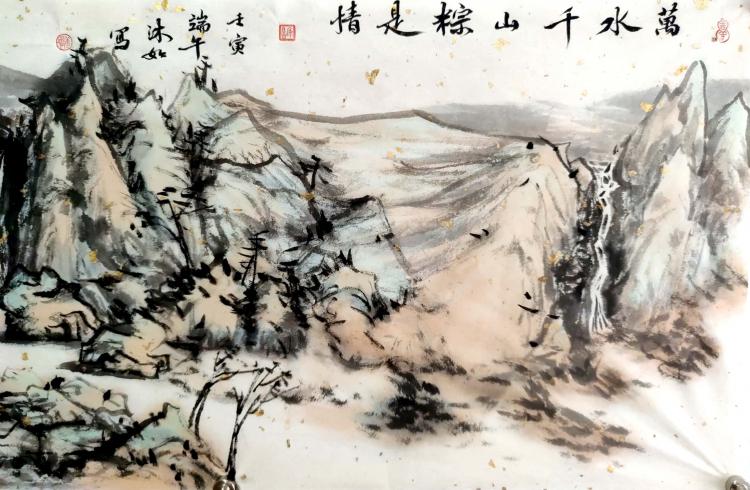 萬水千山粽是情
壬寅
端午
沐如
寫